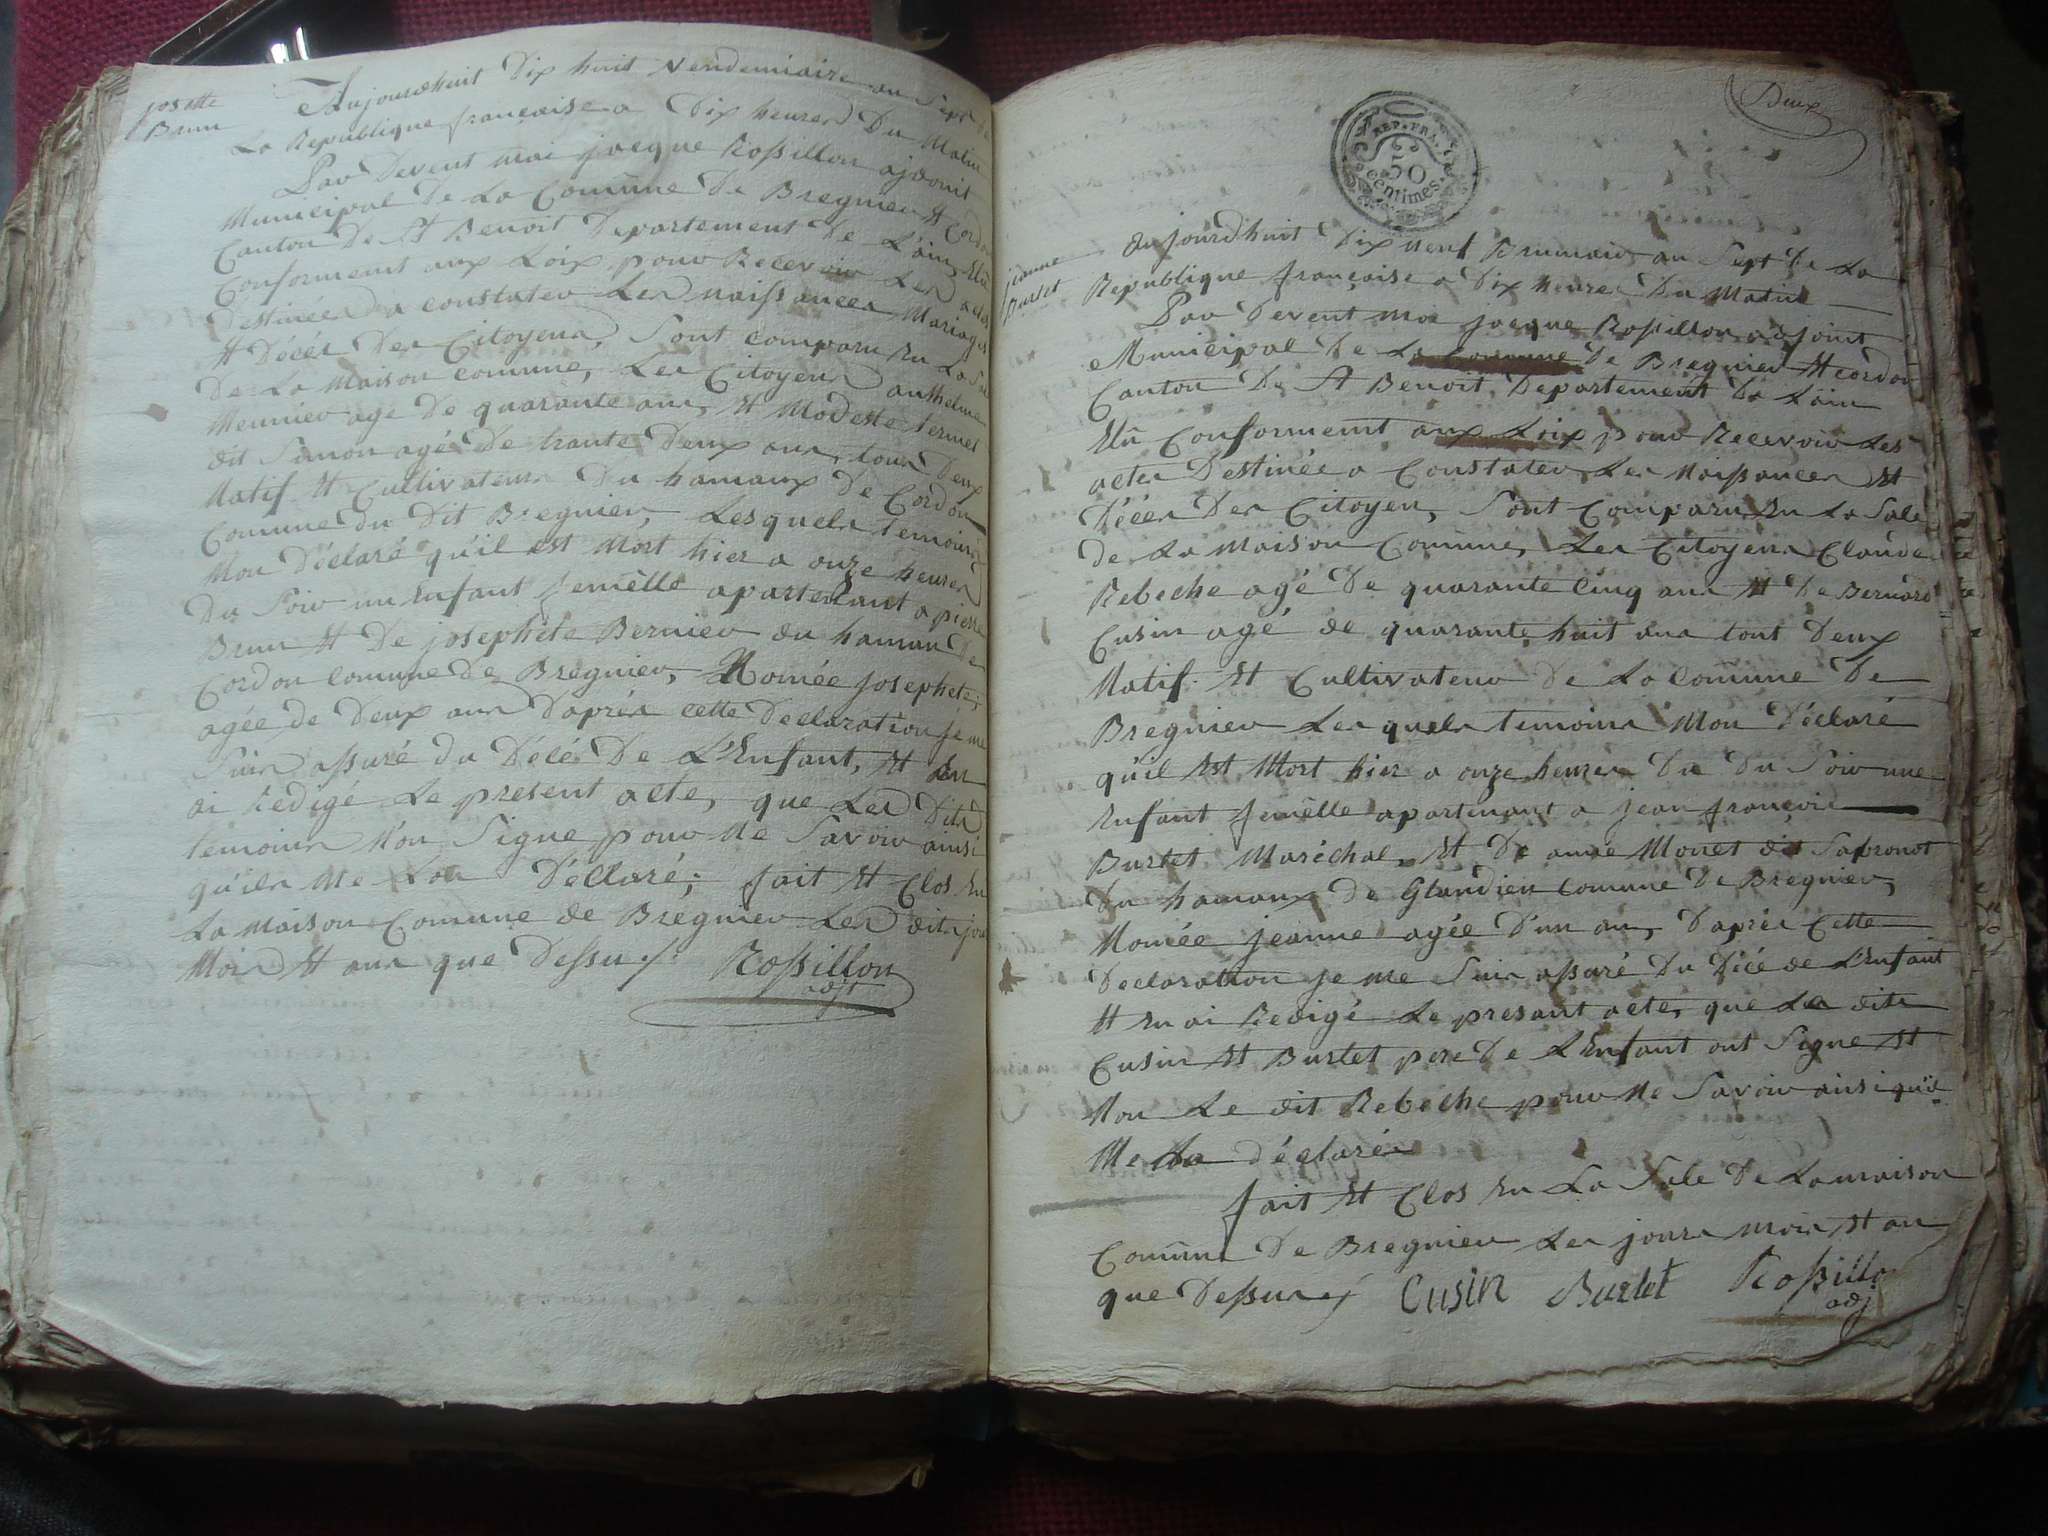 josette
Brun
Aujourdhuit Dix huit Vendemiaire an Sept de
La Republique françaises a Dix heures Du Matin
Par Devent moi jacque Roßillon ajdoint
Municipal De La Comune De Bregnier Et Cordon
Canton De St Benoit Departement De L'ain, Elû
Conformement aux Loix, pour Recevoir Les actes
Destinées a constater Les naißances Mariages
Et Décès Des Citoyens, Sont comparu En La Sale
De La Maison comune, Les Citoyens anthelme
Meunier agé De quarante ans, Et Modeste
dit Simon agé De trante Deux ans, tous Deux
Natif Et Cultivateurs Du hamaux De Cordon
Comune du Dit Bregnier, Lesquels temoins
Mon Déclaré qu'il est Mort hier a onze heures
Du Soir un Enfant femelle apartenant a pierre
Brun Et De josephete Bernier du hamau De
Cordon Comune De Bregnier, Nomée josephete,
agée de Deux ans D'après cette Declaration je me
Suis aßuré du Décé De L'Enfant, Et En
ai Redigé Le present acte, que Les Dits
temoins N'on Signe pour Ne Savoir ainsi
qu'ils Me Lon Déclaré; fait Et Clos En
La Maison Comune de Bregnier Les dits jour
Mois Et ans que Deßus
Roßillon
adjt
Deux
REP. FRA.
50
centimes.
jeanne
Burtet
Aujourdhuit Dix neuf Brumair an Sept De La
Republique française a Dix heures Du Matin
Par Devent moi jacque Roßillon adjoint
Municipal De La Comune De Bregnier Et Cordon
Canton De St Benoit Departement De Lain
Elû Conformement aux Loix pour Recevoir Les
actes Destinée a Constater Les Naißances Et
Décès Des Citoyen, Sont Comparu En La Sale
de La Maison Comune, Les Citoyens Claude
Rebeche agé De quarante Cinq ans Et De Bernard
Cusin agé de quarante huit ans tout Deux
Natif Et Cultivateur De La Comune De
Bregnier Les quels temoins Mon Déclaré
qu'il Est Mort hier a onze heures Du Du Soir une
Enfant femelle apartenant a jean françois
Burtet Maréchal, Et De anne Monet dit Sapronot
Du hamaux De Glandieu Comune De Bregnier,
Nomée jeanne agée D'un an, D'après Cette
Declaration je me Suis aßuré Du Décé de L'Enfant
Et En ai Redigé Le presant acte, que Les dits
Cusin Et Burtet pere De L'Enfant ont Signe Et
Non Le dit Rebeche pour Ne Savoir ainsi qu'il
Me La déclaré
fait Et Clos En La Sale De La maison
Comune De Bregnier Les jours mois Et an
que Deßus
Cusin Burtet Roßillon
adj